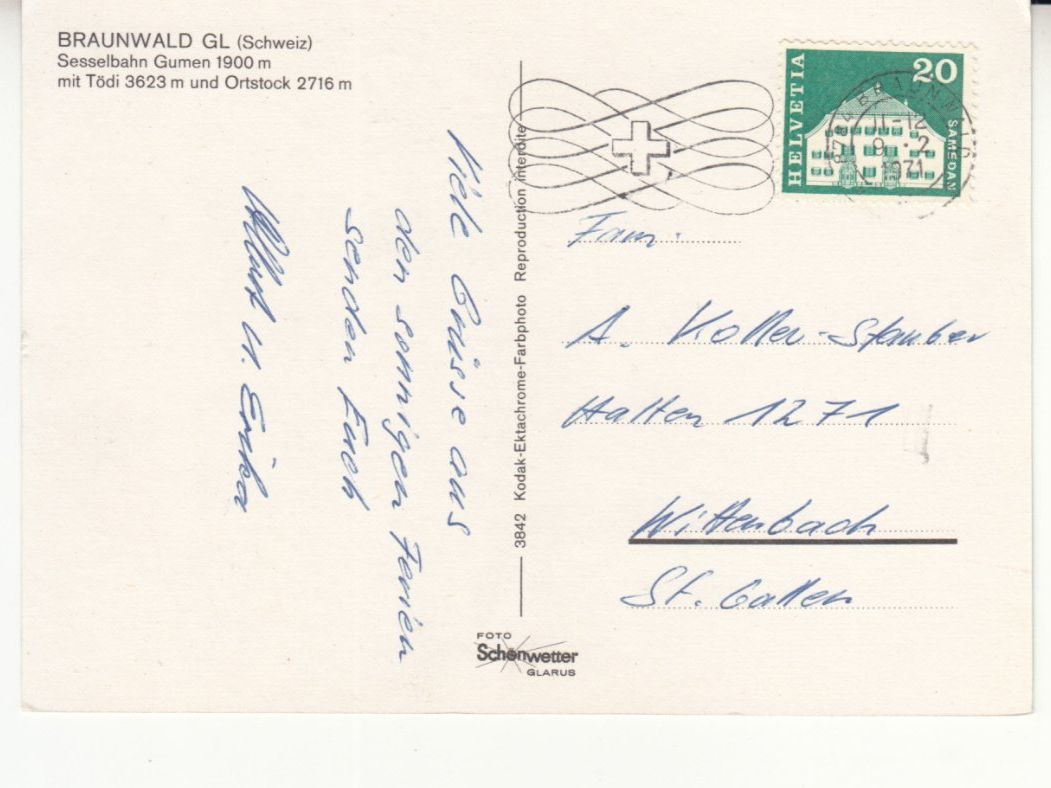 BRAUNWALD GL (Schweiz)
Sesselbahn Gumen 1900 m
mit Tödi 3623 m und Ortstock 2716 m
HELVETIA
20
SAMEDAN
8784 BRAUNWALD
11-12
9.·2
1971
Viele Grüsse aus
den sonnigen Ferien
senden Euch
Albert u. Erika
3842 Kodak-Ektachrome-Farbphoto Reproduction interdite
Fam.
A. Koller-Stauber
Halten 1271
Wittenbach
St. Gallen
FOTO
Schönwetter
GLARUS